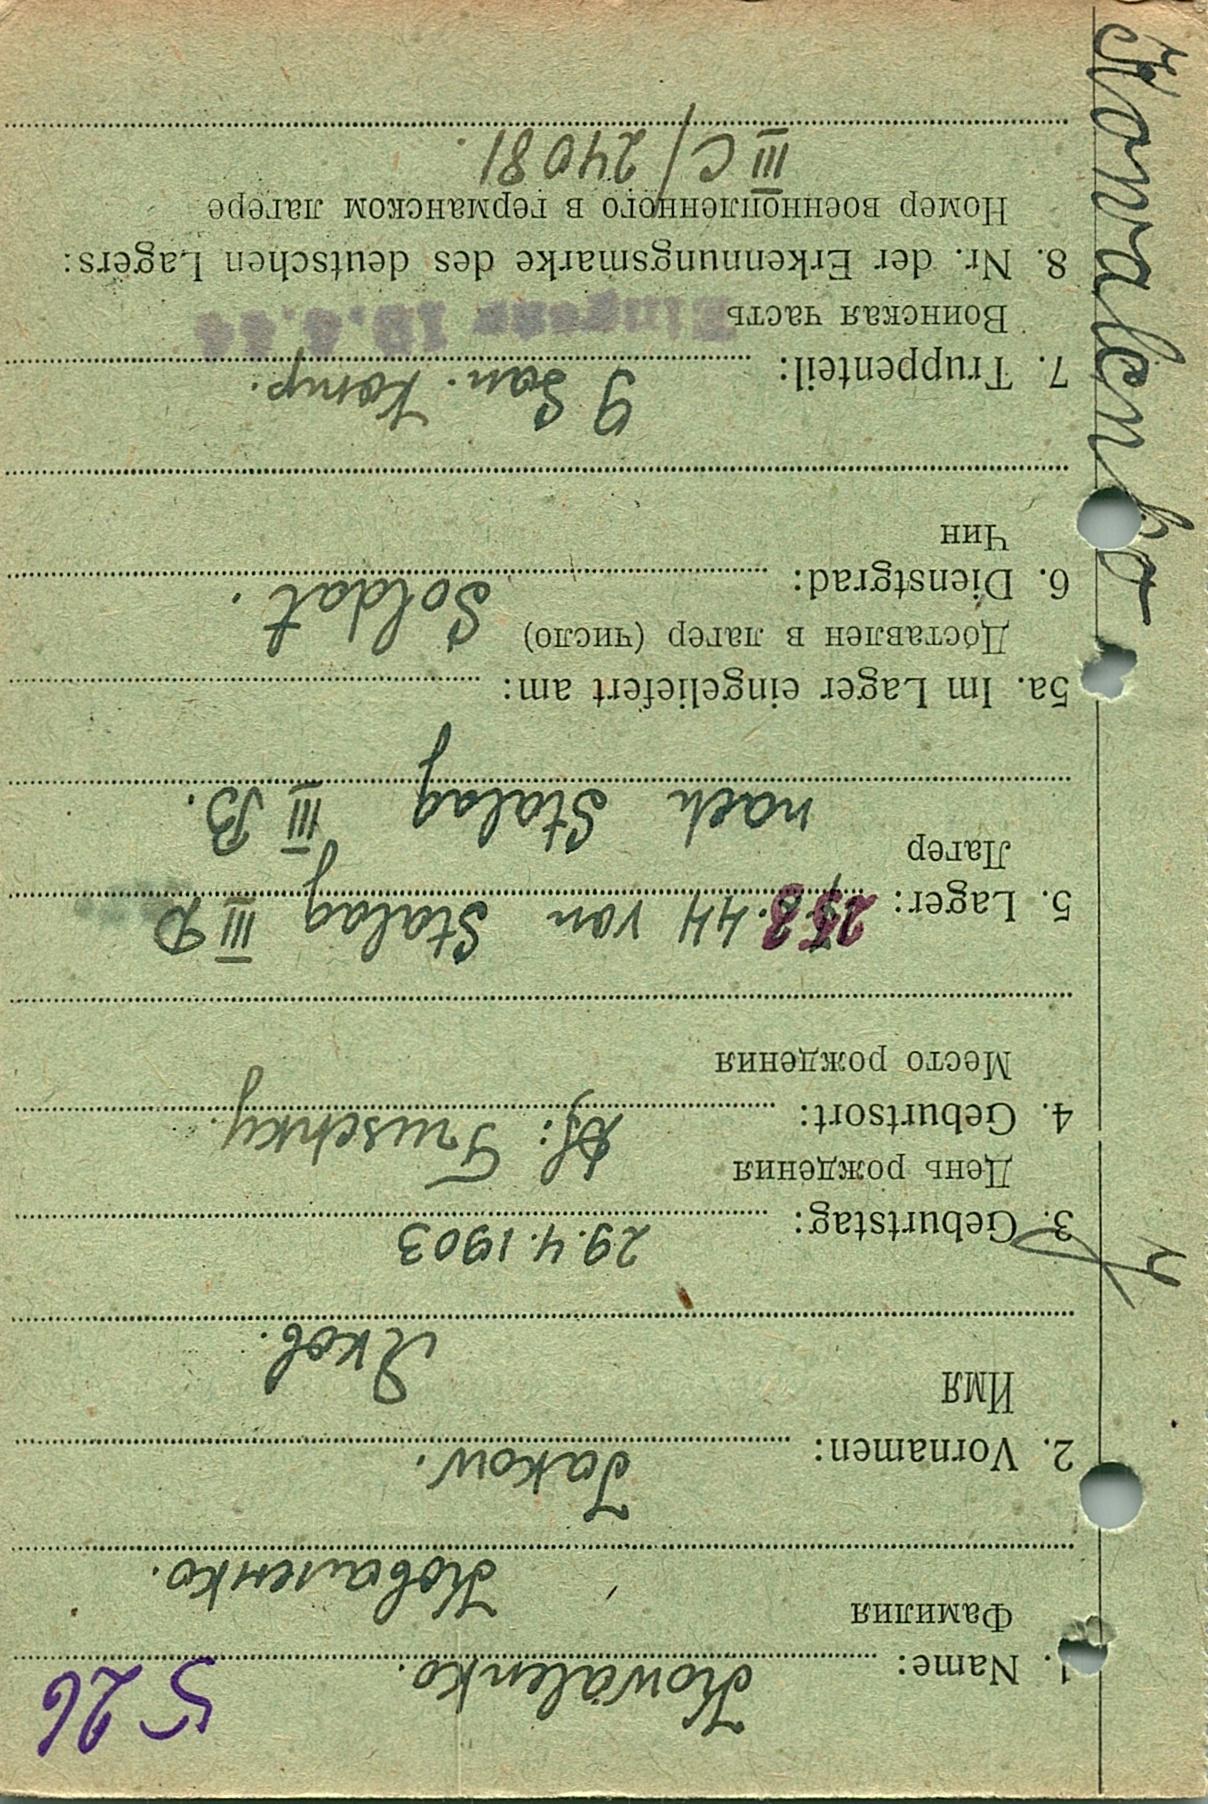 526
1. Name: Kowalenko.
Фамилия
Коваленко.
2. Vornamen: Jakow.
Имя
Яков.
3. Geburtstag: 29.4.1903
День рождения
4. Geburtsort: Df: Truschky.
Место рождения
5. Lager: 8.44 von Stalag III D
Лагер
nach Stalag III B.
5a. Im Lager eingeliefert am:
Доставлен в лагер (число)
6. Dienstgrad: Soldat.
Чин
7. Truppenteil: 9 San. Komp.
Воинская часть
8. Nr. der Erkennungsmarke des deutschen Lagers:
Номер военнопленного в германском лагере
III C/24081.
Kowalenko